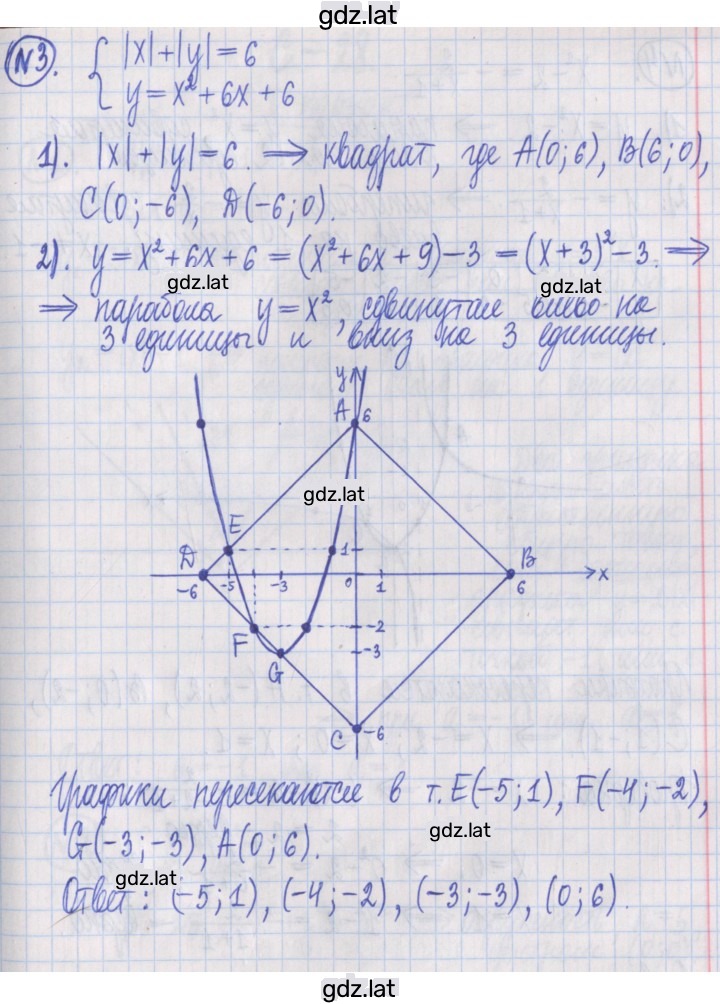 gdz.lat
№3. { |x|+|y|=6
y=x²+6x+6
1). |x|+|y|=6. ⟹ квадрат, где A(0;6), B(6;0),
C(0;-6), D(-6;0).
2). y=x²+6x+6=(x²+6x+9)-3=(x+3)²-3. ⟹
gdz.lat
gdz.lat
⟹ парабола y=x², сдвинутая влево на
3 единицы и вниз на 3 единицы.
y
A 6
gdz.lat
E
D 1 B
-6 -5 -3 0 1 6 x
F -2
G -3
C -6
Графики пересекаются в т. E(-5;1), F(-4;-2),
G(-3;-3), A(0;6).
gdz.lat
gdz.lat
Ответ: (-5;1), (-4;-2), (-3;-3), (0;6).
gdz.lat